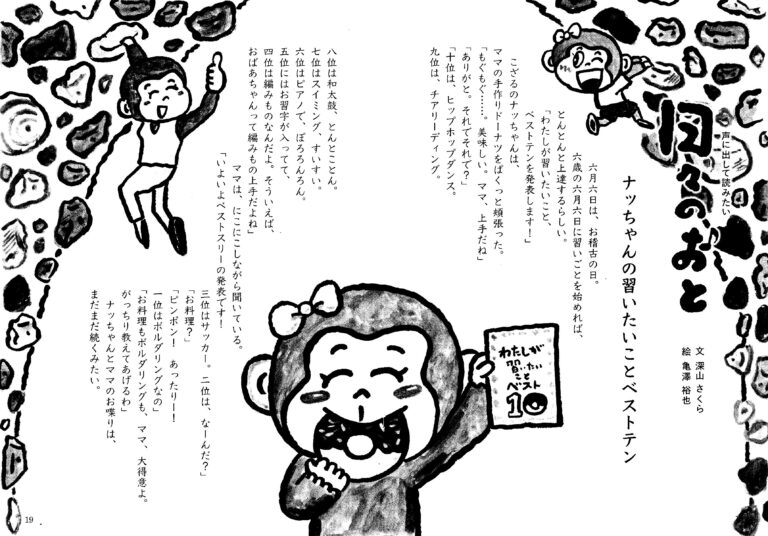 声に出して読みたい
日々の、おと
ナッちゃんの習いたいことベストテン
文 深山さくら
絵 亀澤 裕也
六月六日は、お稽古の日。
六歳の六月六日に習いごとを始めれば、
とんとんと上達するらしい。
「わたしが習いたいこと、
ベストテンを発表します！」
こざるのナッちゃんは、
ママの手作りドーナツをぱくっと頬張った。
「もぐもぐ……。美味しい。ママ、上手だね」
「ありがと。それでそれで？」
「十位は、ヒップホップダンス。
九位は、チアリーディング。
八位は和太鼓、とんとことん。
七位はスイミング、すいすい。
六位はピアノで、ぽろろんろん。
五位にはお習字が入ってて、
四位は編みものなんだよ。そういえば、
おばあちゃんって編みもの上手だよね」
ママは、にこにこしながら聞いている。
「いよいよベストスリーの発表です！
三位はサッカー。二位は、なーんだ？」
「お料理？」
「ピンポン！　あったりー！
一位はボルダリングなの」
「お料理もボルダリングも、ママ、大得意よ。
がっちり教えてあげるわ」
ナッちゃんとママのお喋りは、
まだまだ続くみたい。
わたしが
習いたい
こと
ベスト
10
19